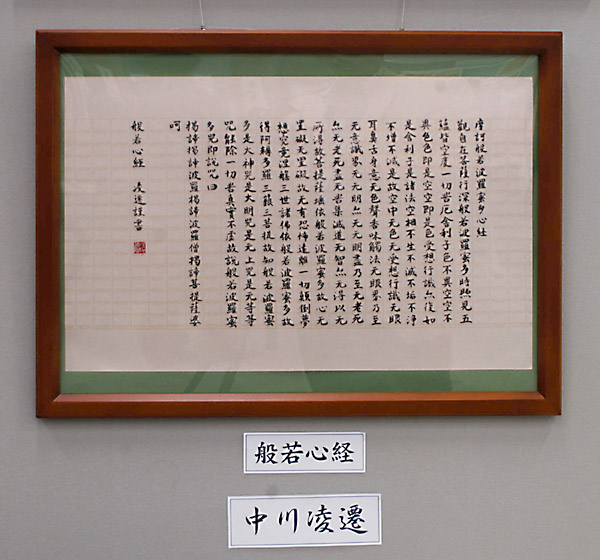 摩訶般若波羅蜜多心経
觀自在菩薩行深般若波羅蜜多時照見五
蘊皆空度一切苦厄舎利子色不異空空不
異色色即是空空即是色受想行識亦復如
是舎利子是諸法空相不生不滅不垢不浄
不増不減是故空中无色无受想行識无眼
耳鼻舌身意无色聲香味觸法无眼界乃至
无意識界无无明亦无无明盡乃至无老死
亦无老死盡无苦集滅道无智亦无得以无
所得故菩提薩埵依般若波羅蜜多故心无
罣礙无罣礙故无有恐怖遠離一切顛倒夢
想究竟涅槃三世諸佛依般若波羅蜜多故
得阿耨多羅三藐三菩提故知般若波羅蜜
多是大神咒是大明咒是无上咒是无等等
咒能除一切苦真實不虚故説般若波羅蜜
多咒即説咒曰
揭諦揭諦波羅揭諦波羅僧揭諦菩提薩婆
呵
般若心経 凌遷謹書
般若心経
中川凌遷